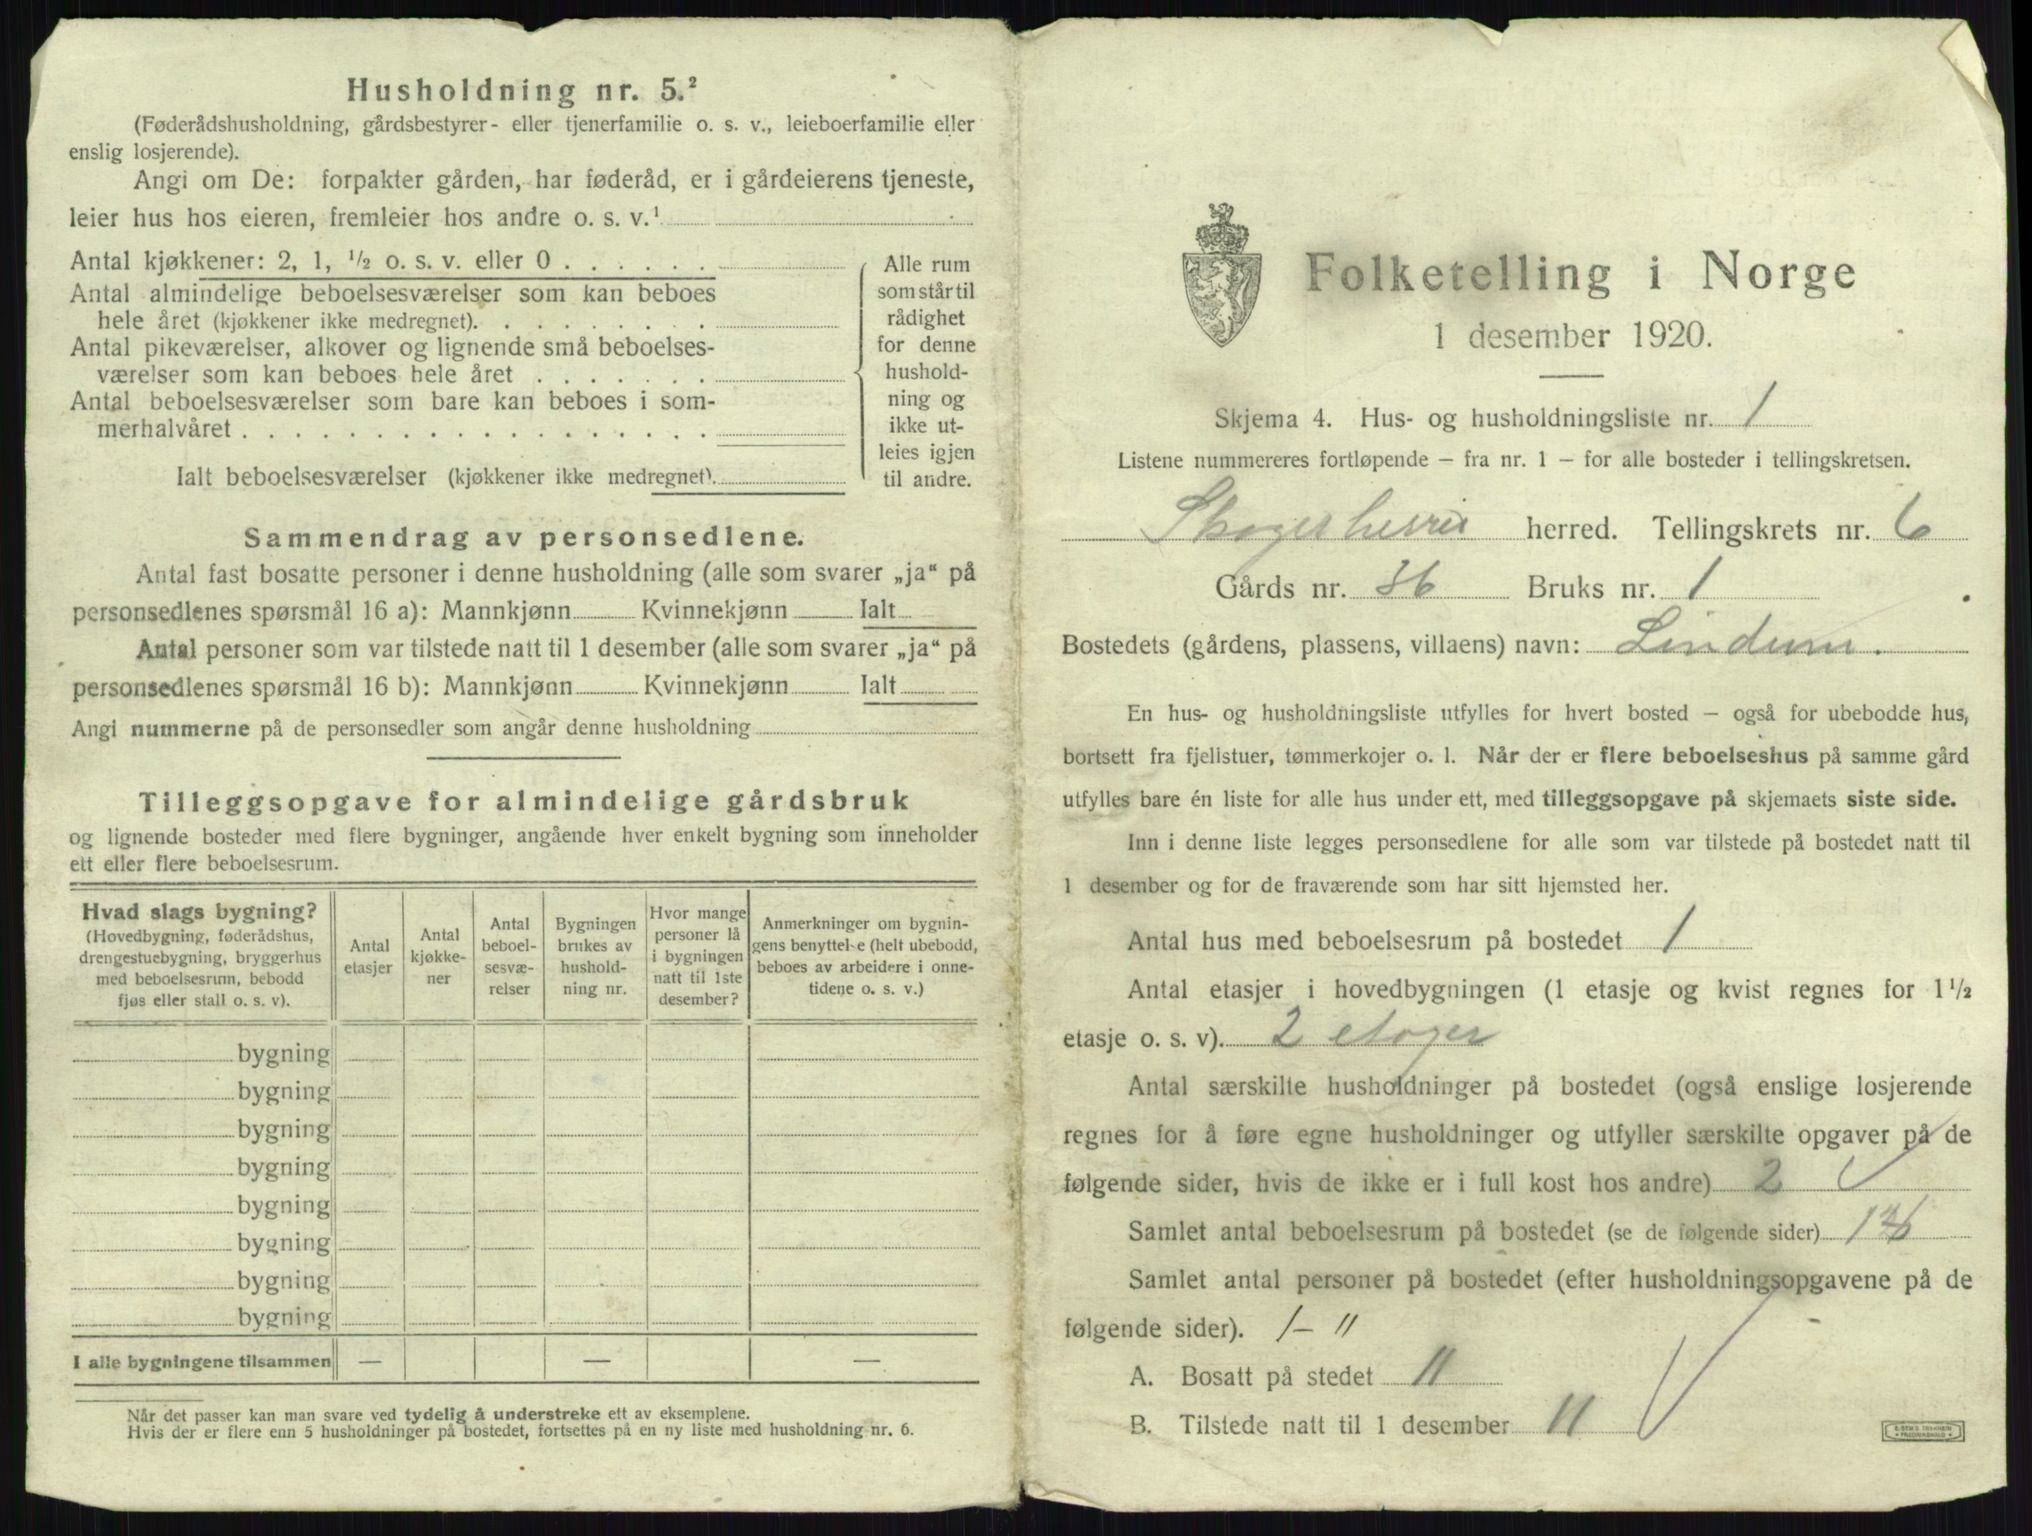 Husholdning nr. 5.²
(Føderådshusholdning, gårdsbestyrer- eller tjenerfamilie o. s. v., leieboerfamilie eller
enslig losjerende).
Angi om De: forpakter gården, har føderåd, er i gårdeierens tjeneste,
leier hus hos eieren, fremleier hos andre o. s. v.¹
Antal kjøkkener: 2, 1, ½ o. s. v. eller 0 . . . . . .
Antal almindelige beboelsesværelser som kan beboes
hele året (kjøkkener ikke medregnet). . . . . . . . .
Antal pikeværelser, alkover og lignende små beboelses-
værelser som kan beboes hele året . . . . . . .
Antal beboelsesværelser som bare kan beboes i som-
merhalvåret . . . . . . . . . . . . . . . . . .
Ialt beboelsesværelser (kjøkkener ikke medregnet).
Alle rum
som står til
rådighet
for denne
hushold-
ning og
ikke ut-
leies igjen
til andre.
Sammendrag av personsedlene.
Antal fast bosatte personer i denne husholdning (alle som svarer „ja“ på
personsedlenes spørsmål 16 a): Mannkjønn Kvinnekjønn Ialt
Antal personer som var tilstede natt til 1 desember (alle som svarer „ja“ på
personsedlenes spørsmål 16 b): Mannkjønn Kvinnekjønn Ialt
Angi nummerne på de personsedler som angår denne husholdning
Tilleggsopgave for almindelige gårdsbruk
og lignende bosteder med flere bygninger, angående hver enkelt bygning som inneholder
ett eller flere beboelsesrum.
Hvad slags bygning?
(Hovedbygning, føderådshus,
drengestuebygning, bryggerhus
med beboelsesrum, bebodd
fjøs eller stall o. s. v).
Antal
etasjer
Antal
kjøkke-
ner
Antal
beboel-
sesvæ-
relser
Bygningen
brukes av
hushold-
ning nr.
Hvor mange
personer lå
i bygningen
natt til 1ste
desember?
Anmerkninger om bygnin-
gens benyttelse (helt ubebodd,
beboes av arbeidere i onne-
tidene o. s. v.)
bygning
bygning
bygning
bygning
bygning
bygning
bygning
bygning
I alle bygningene tilsammen — — —
Når det passer kan man svare ved tydelig å understreke ett av eksemplene.
Hvis der er flere enn 5 husholdninger på bostedet, fortsettes på en ny liste med husholdning nr. 6.
Folketelling i Norge
1 desember 1920.
Skjema 4. Hus- og husholdningsliste nr. 1
Listene nummereres fortløpende — fra nr. 1 — for alle bosteder i tellingskretsen.
herred. Tellingskrets nr. 6
Gårds nr. 36 Bruks nr. 1
Bostedets (gårdens, plassens, villaens) navn: Lindum.
En hus- og husholdningsliste utfylles for hvert bosted — også for ubebodde hus,
bortsett fra fjellstuer, tømmerkojer o. l. Når der er flere beboelseshus på samme gård
utfylles bare én liste for alle hus under ett, med tilleggsopgave på skjemaets siste side.
Inn i denne liste legges personsedlene for alle som var tilstede på bostedet natt til
1 desember og for de fraværende som har sitt hjemsted her.
Antal hus med beboelsesrum på bostedet 1
Antal etasjer i hovedbygningen (1 etasje og kvist regnes for 1½
etasje o. s. v). 2 etager
Antal særskilte husholdninger på bostedet (også enslige losjerende
regnes for å føre egne husholdninger og utfyller særskilte opgaver på de
følgende sider, hvis de ikke er i full kost hos andre) 2
Samlet antal beboelsesrum på bostedet (se de følgende sider)
Samlet antal personer på bostedet (efter husholdningsopgavene på de
følgende sider). 1 — 11
A. Bosatt på stedet 11
B. Tilstede natt til 1 desember 11